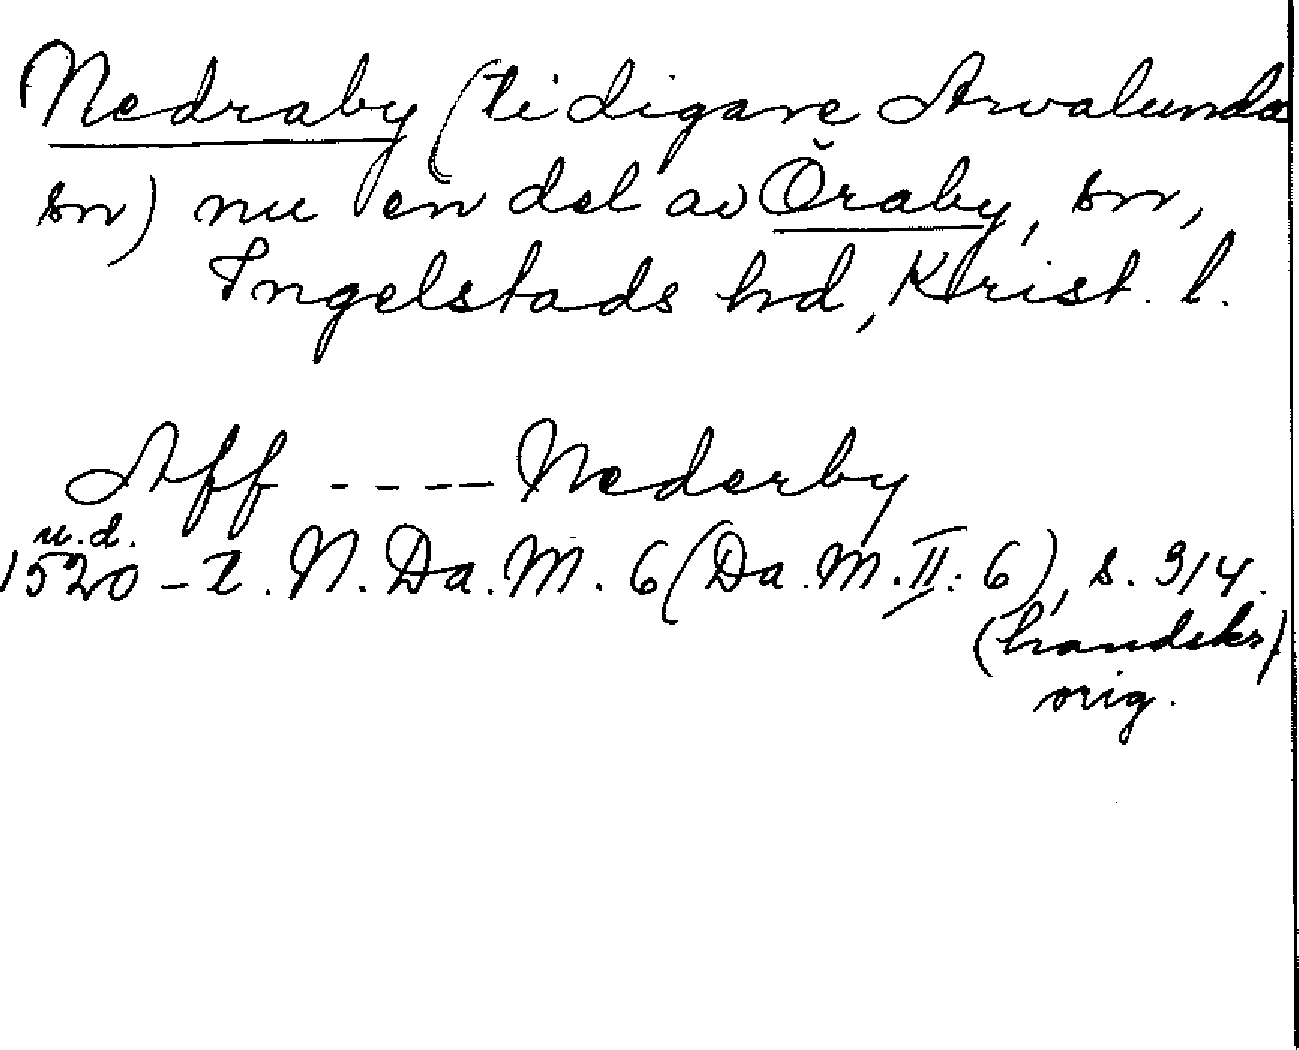 Nedraby (tidigare Arvalunda
sn) nu en del av Öraby, sn,
Ingelstads hd, Krist. l.
Aff ---- Nederby
u.d.
1520-t. N. Da. M. 6 (Da. M. II: 6), s. 314.
(handskr)
orig.